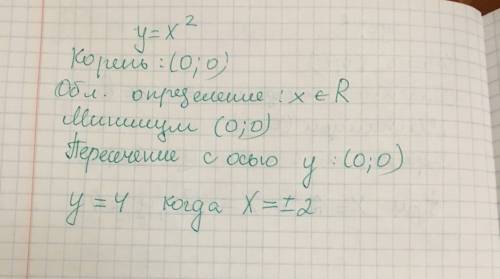 y=x²
Корень:(0;0)
Обл. определение: x ∈ R
Минимум (0;0)
Пересечение с осью y:(0;0)
y=4 когда X=±2